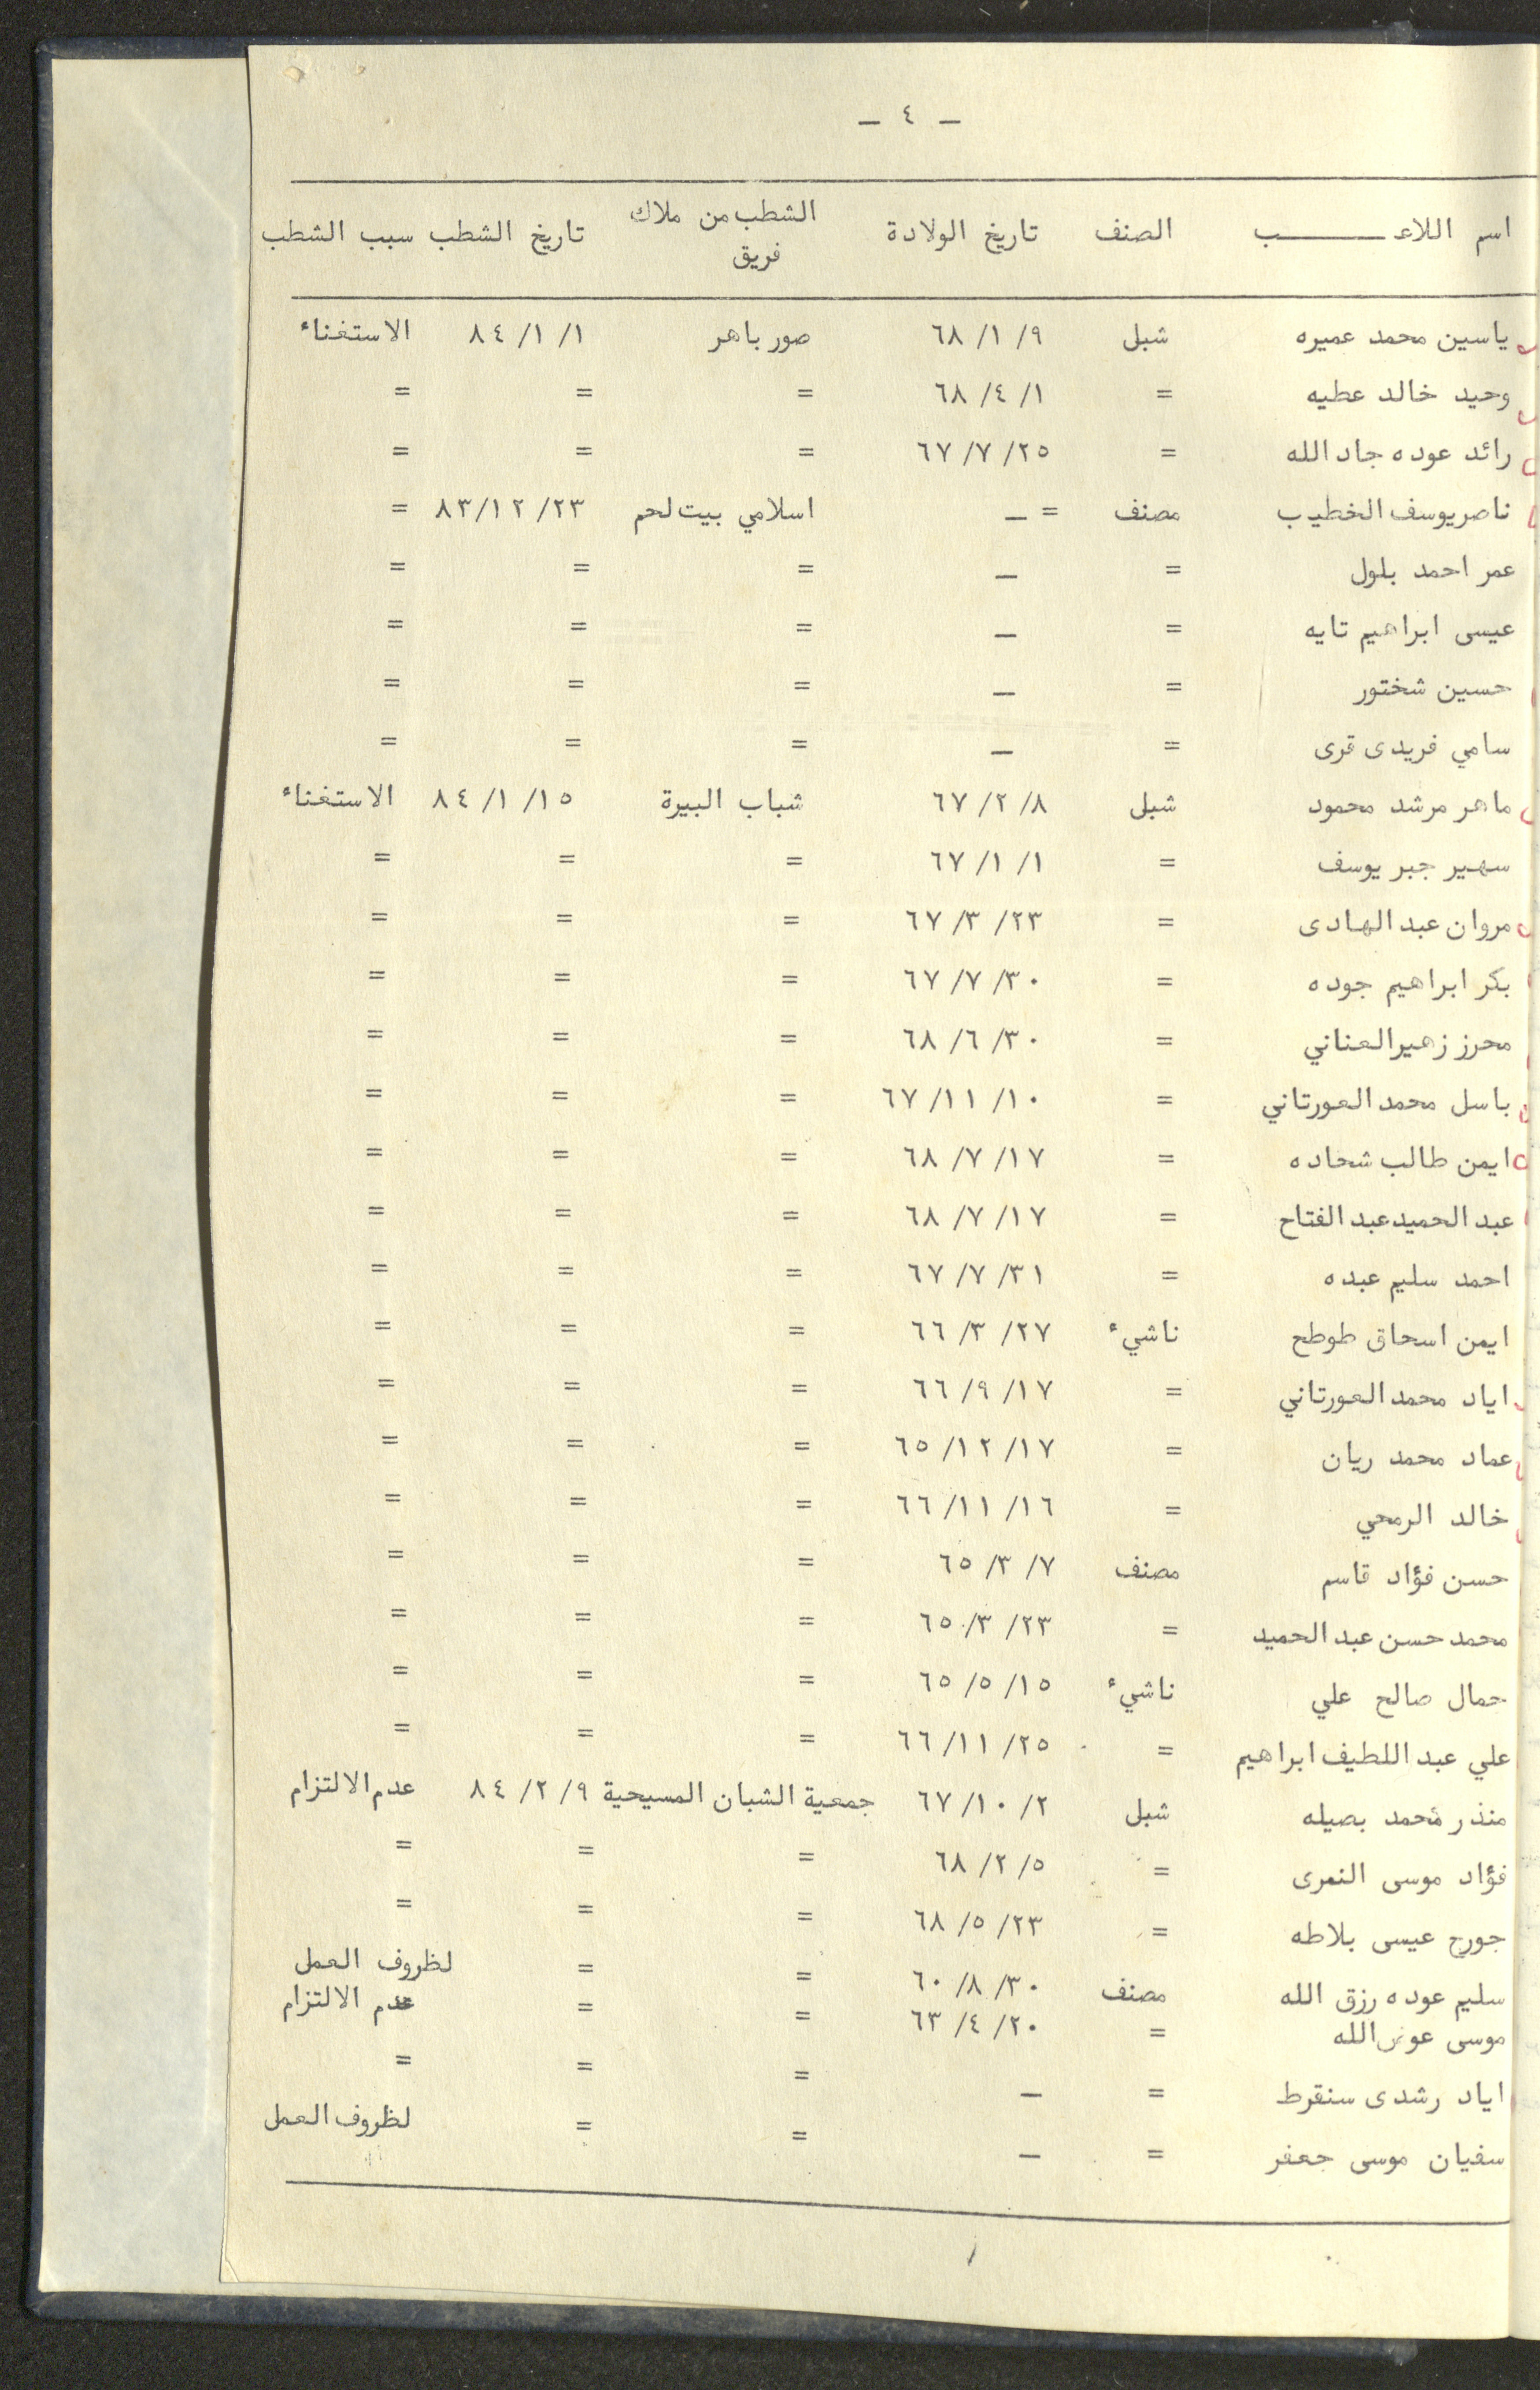 - ٤ -
اسم اللاعـــــب الصنف تاريخ الولادة الشطب من ملاك فريق تاريخ الشطب سبب الشطب
ياسين محمد عميره شبل ٩/ ١/ ٦٨ صور باهر ١/ ١/ ٨٤ الاستغناء
وحيد خالد عطيه = ١/ ٤/ ٦٨ = = =
رائد عوده جاد الله = ٢٥/ ٧/ ٦٧ = = =
ناصر يوسف الخطيب مصنف = - اسلامي بيت لحم ٢٣/ ١٢/ ٨٣ =
عمر احمد بلول = - = = =
عيسى ابراهيم تايه = - = = =
حسين شختور = - = = =
سامي فريدى قرى = - = = =
ماهر مرشد محمود شبل ٨/ ٢/ ٦٧ شباب البيرة ١٥/ ١/ ٨٤ الاستغناء
سهير جبر يوسف = ١/ ١/ ٦٧ = = =
مروان عبد الهادى = ٢٣/ ٣/ ٦٧ = = =
بكر ابراهيم جوده = ٣٠/ ٧/ ٦٧ = = =
محرز زهير العناني = ٣٠/ ٦/ ٦٨ = = =
باسل محمد العورتاني = ١٠/ ١١/ ٦٧ = = =
ايمن طالب شحاده = ١٧/ ٧/ ٦٨ = = =
عبد الحميد عبد الفتاح = ١٧/ ٧/ ٦٨ = = =
احمد سليم عبده = ٣١/ ٧/ ٦٧ = = =
ايمن اسحاق طوطح ناشيء ٢٧/ ٣/ ٦٦ = = =
اياد محمد العورتاني = ١٧/ ٩/ ٦٦ = = =
عماد محمد ريان = ١٧/ ١٢/ ٦٥ = = =
خالد الرمحي = ١٦/ ١١/ ٦٦ = = =
حسن فؤاد قاسم مصنف ٧/ ٣/ ٦٥ = = =
محمد حسن عبد الحميد = ٢٣/ ٣/ ٦٥ = = =
جمال صالح علي ناشيء ١٥/ ٥/ ٦٥ = = =
علي عبد اللطيف ابراهيم = ٢٥/ ١١/ ٦٦ = = =
منذر محمد بصيله شبل ٢/ ١٠/ ٦٧ جمعية الشبان المسيحية ٩/ ٢/ ٨٤ عدم الالتزام
فؤاد موسى النمرى = ٥/ ٢/ ٦٨ = = =
جورج عيسى بلاطه = ٢٣/ ٥/ ٦٨ = = =
سليم عوده رزق الله مصنف ٣٠/ ٨/ ٦٠ = = لظروف العمل
موسى عوض الله = ٢٠/ ٤/ ٦٣ = = عدم الالتزام
اياد رشدى سنقرط = - = = =
سفيان موسى جعفر = - = = لظروف العمل